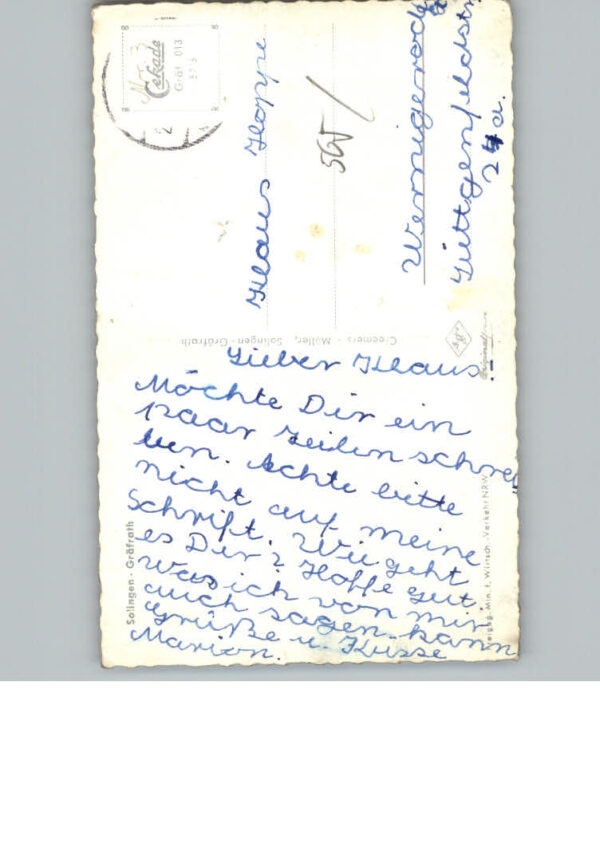 Cekade
Gräf. 013
57 5
Klaus Hoppe
565 /
Wernigerode
Lüttgenfeldstr.
24 a.
Cleemers - Müller, Solingen-Gräfrath
Lieber Klaus!
Möchte Dir ein
paar Zeilen schrei
ben. Achte bitte
nicht auf meine
Schrift. Wie geht
es Dir? Hoffe gut
was ich von mir
auch sagen kann
Grüße u. Küsse
Marion.
Solingen - Gräfrath
Min. f. Wirtsch. Verkehr NRW